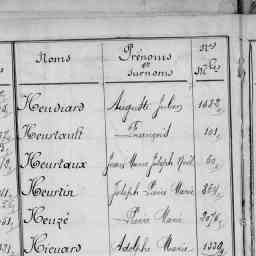 Noms Prénoms et surnoms Nos Mles
Heudiard Auguste Julien 1652
Heurtault François 101
Heurtaux Jean Marie Joseph 60
Heurtin Joseph Pierre Marie 864
Heuzé Pierre Marie 2076
Hieuard Adolphe Marie 1330